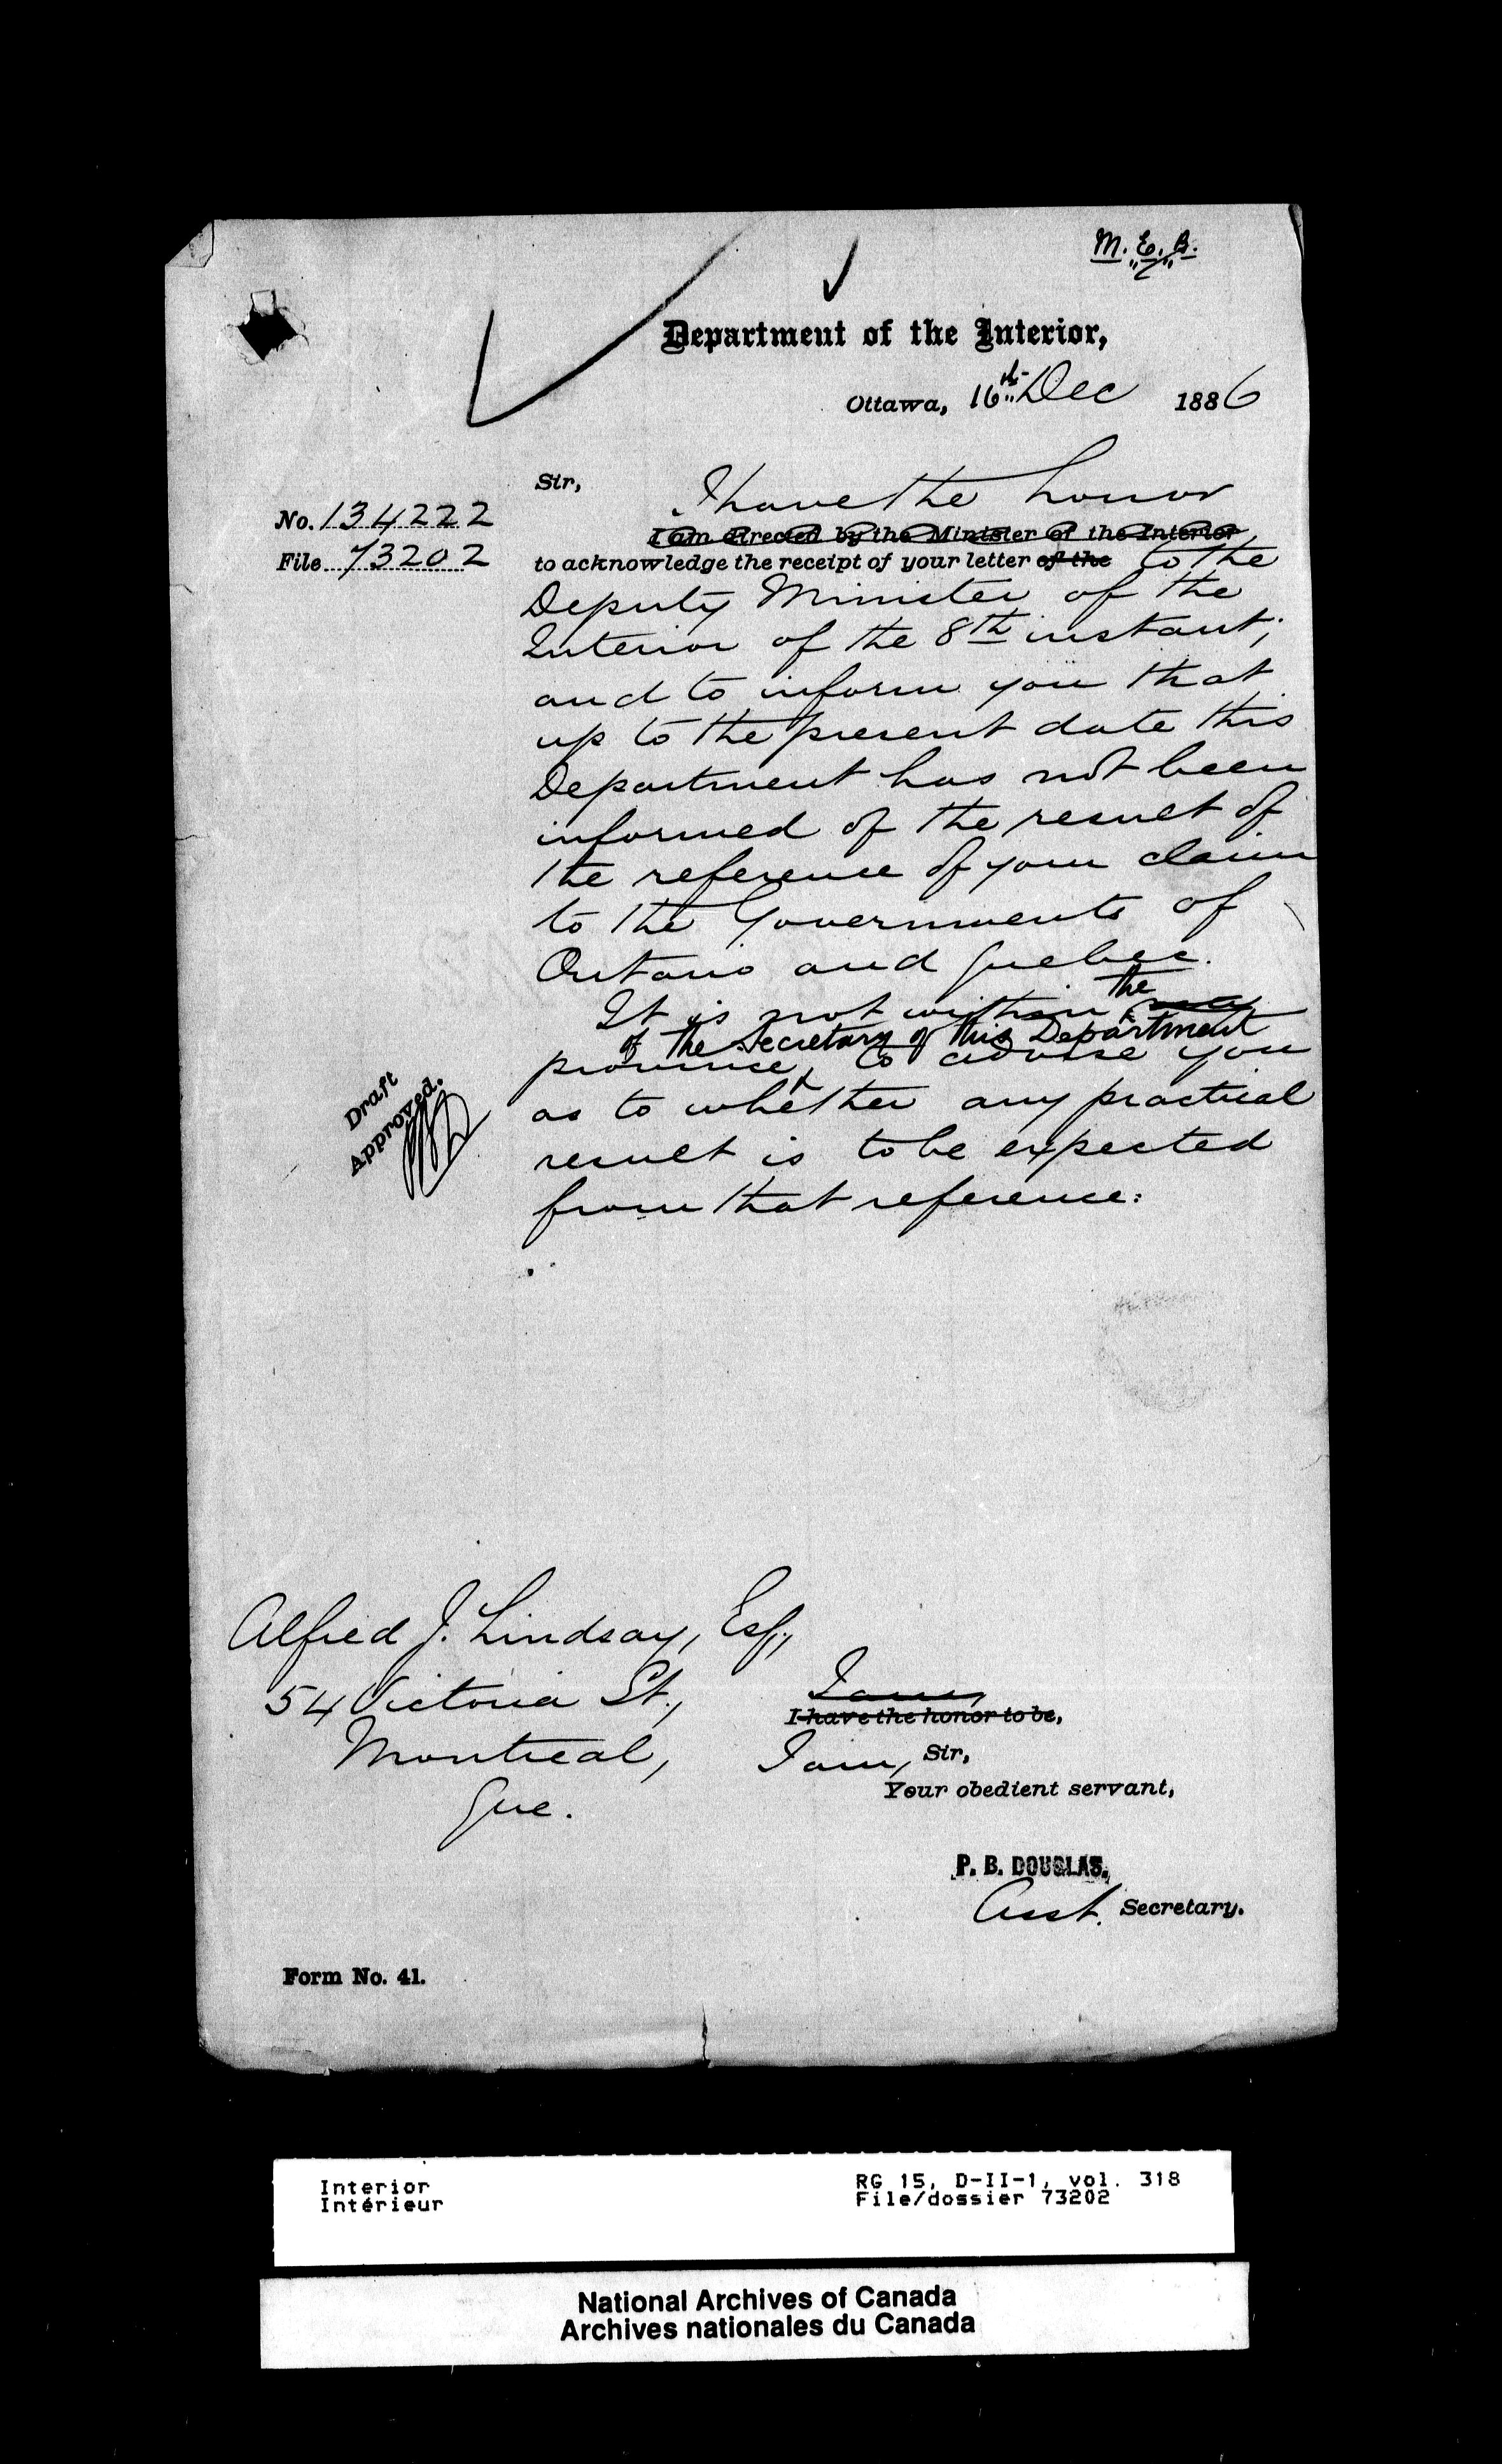 M. E. B.
Department of the Interior,
Ottawa, 16th Dec 1886
Sir,
I have the honor
No. 134222
I am directed by the Minister of the Interior
File 73202
to acknowledge the receipt of your letter of the to the
Deputy Minister of the
Interior of the 8th instant;
and to inform you that
up to the present date this
Department has not been
informed of the result of
the reference of your claim
to the Governments of
Ontario and Quebec.
It is not within the
of the Secretary of this Department
province, to advise you
as to whether any practical
result is to be expected
from that reference:
Draft
Approved.
Alfred J. Lindsay, Esq.,
54 Victoria St.,
Montreal,
Que.
I am,
I have the honor to be,
I am, Sir,
Your obedient servant,
P. B. DOUGLAS,
Asst. Secretary.
Form No. 41.
Interior
Intérieur
RG 15, D-II-1, vol. 318
File/dossier 73202
National Archives of Canada
Archives nationales du Canada